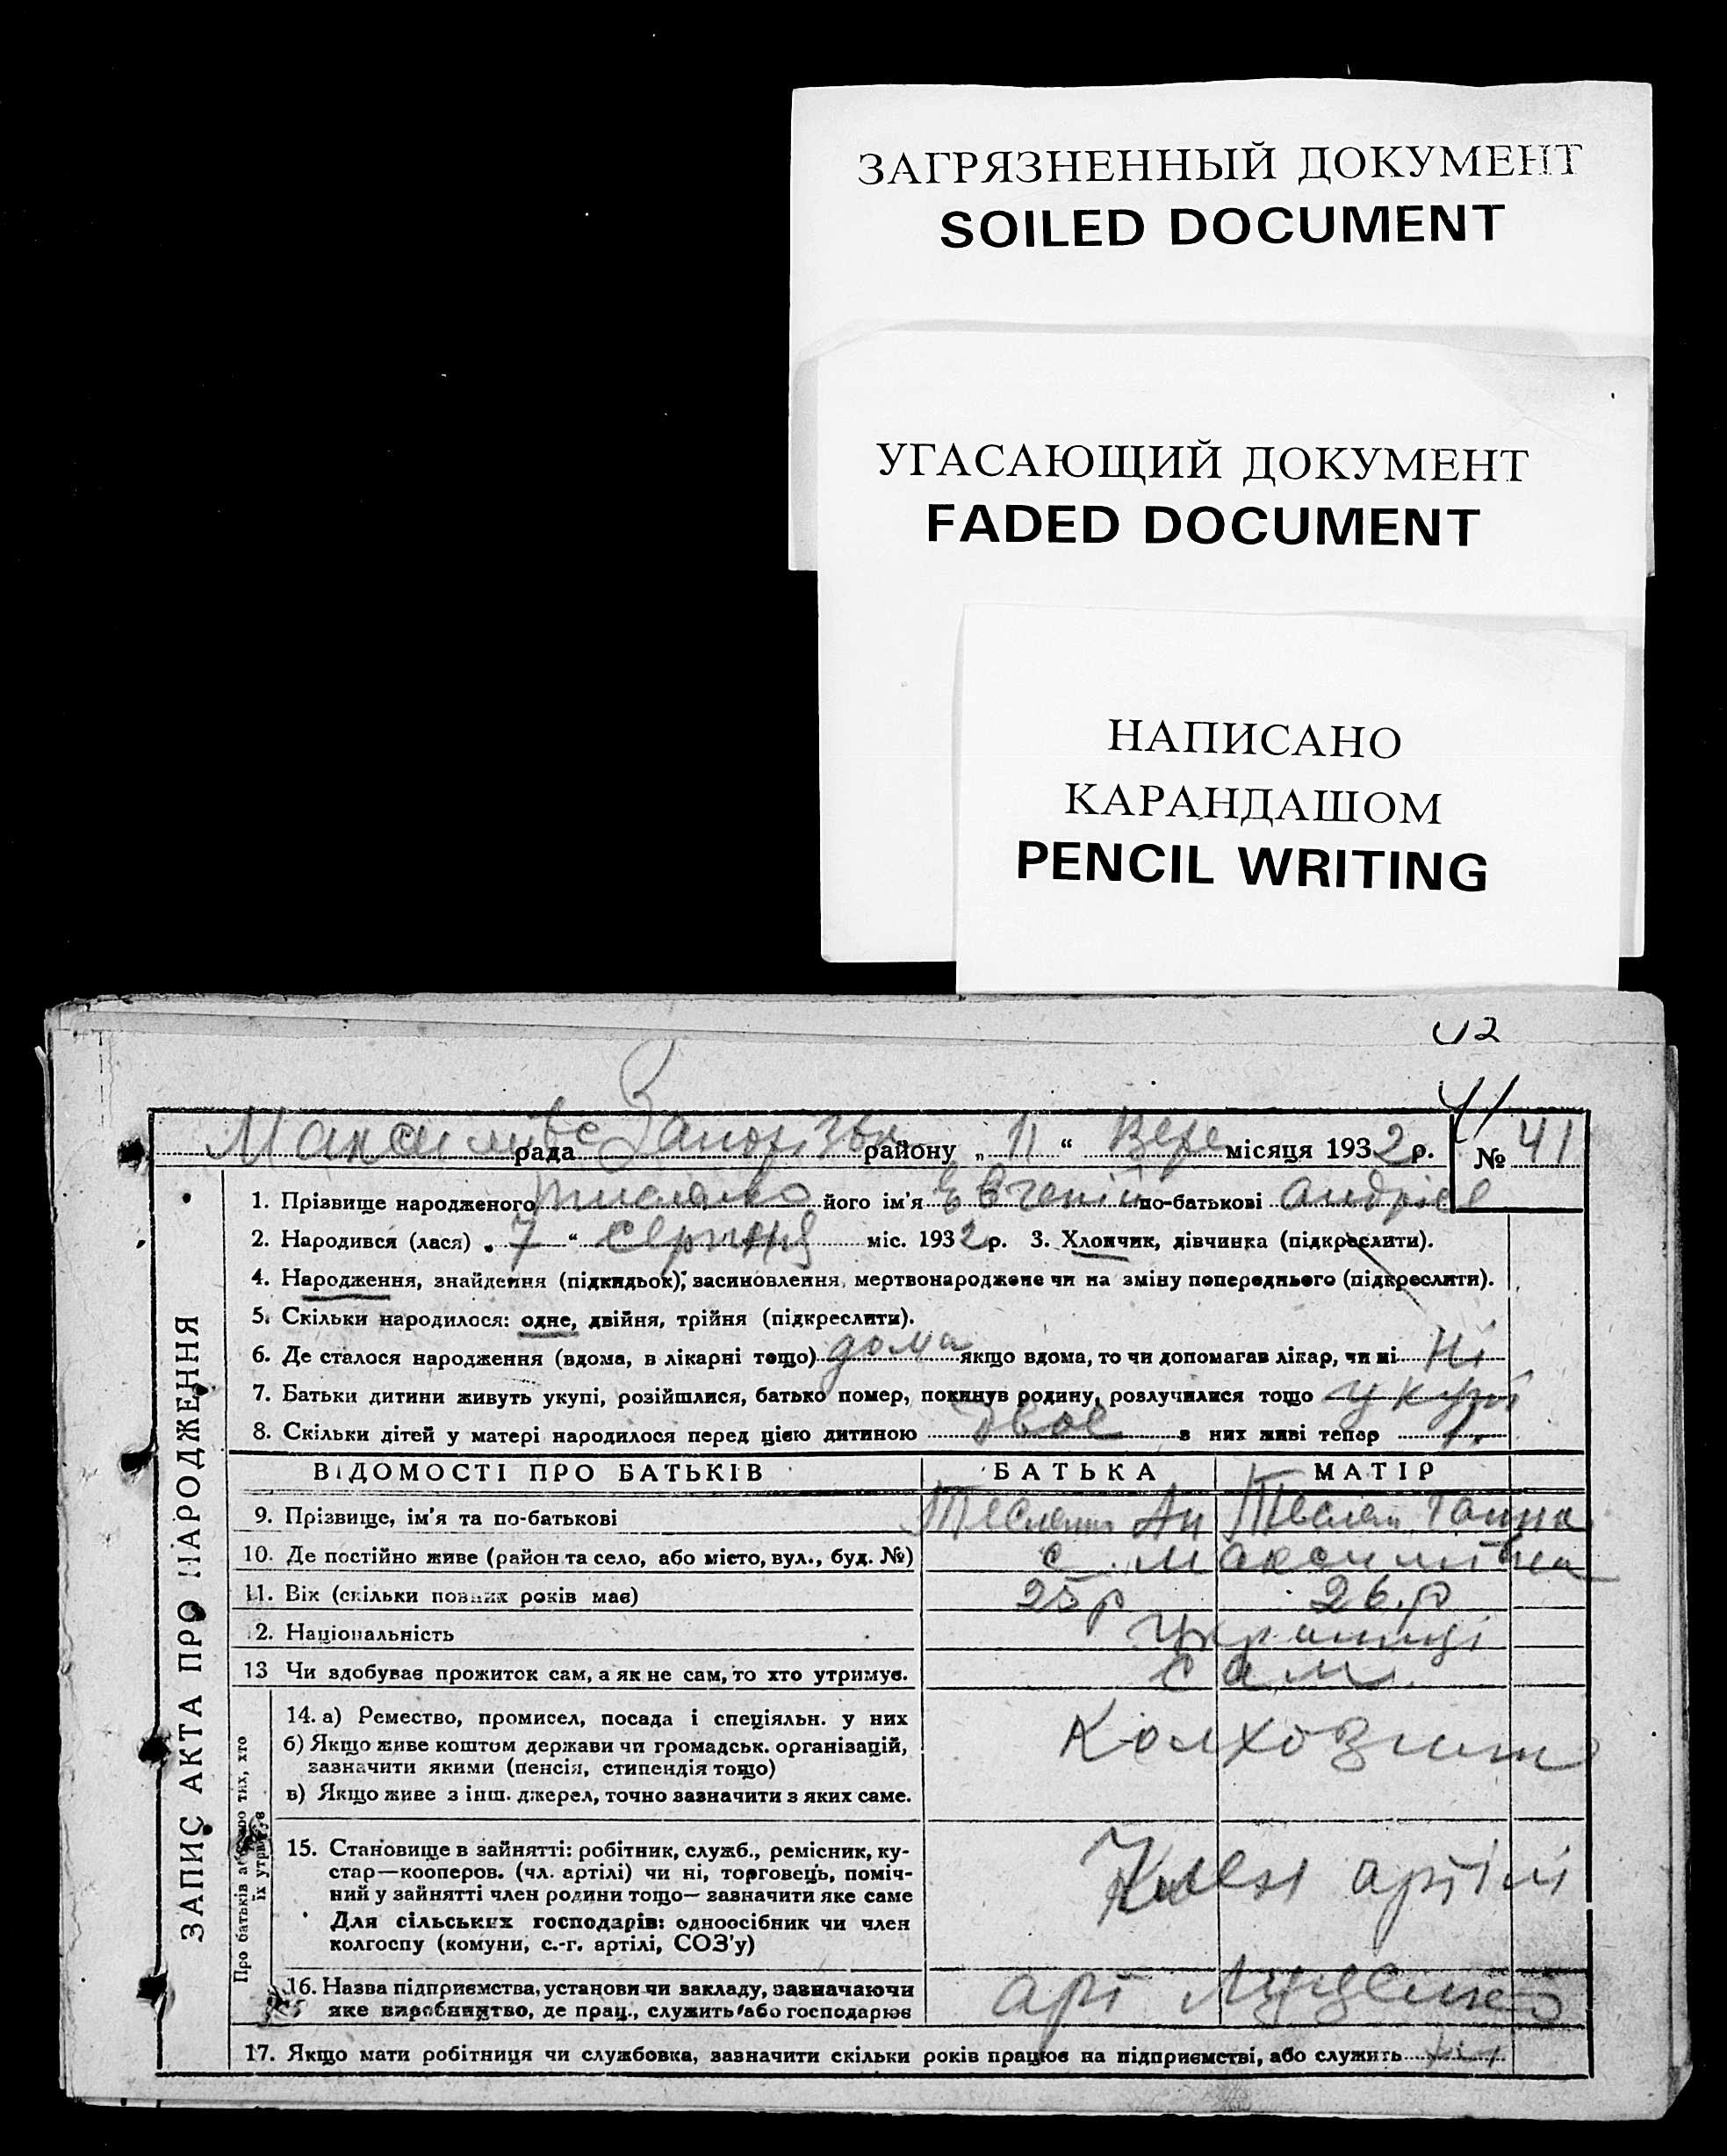 ЗАГРЯЗНЕННЫЙ ДОКУМЕНТ
SOILED DOCUMENT
УГАСАЮЩИЙ ДОКУМЕНТ
FADED DOCUMENT
НАПИСАНО
КАРАНДАШОМ
PENCIL WRITING
42
41
рада району „ 11 “ Вере місяця 1932 р. № 41
ЗАПИС АКТА ПРО НАРОДЖЕННЯ
1. Прізвище народженого його ім'я Євгеній по-батькові Андріев
2. Народився (лася) „ 7 “ серпня міс. 1932 р. 3. Хлопчик, дівчинка (підкреслити).
4. Народження, знайдення (підкидьок), засиновлення, мертвонароджене чи на зміну попереднього (підкреслити).
5. Скільки народилося: одне, двійня, трійня (підкреслити).
6. Де сталося народження (вдома, в лікарні тощо) дома якщо вдома, то чи допомагав лікар, чи ні Ні
7. Батьки дитини живуть укупі, розійшлися, батько помер, покинув родину, розлучилися тощо укупі
8. Скільки дітей у матері народилося перед цією дитиною двое в них живі тепер 1.
ВІДОМОСТІ ПРО БАТЬКІВ БАТЬКА МАТІР
9. Прізвище, ім'я та по-батькові Ан Ганна
10. Де постійно живе (район та село, або місто, вул., буд. №) с.
11. Вік (скільки повних років має) 25 р 26. р
12. Національність Українці
13 Чи здобуває прожиток сам, а як не сам, то хто утримує. сам.
Про батьків або про тих, хто їх утримує
14. а) Ремество, промисел, посада і спеціяльн. у них
б) Якщо живе коштом держави чи громадськ. організацій,
зазначити якими (пенсія, стипендія тощо)
в) Якщо живе з інш. джерел, точно зазначити з яких саме.
Колхозник
15. Становище в зайнятті: робітник, служб., ремісник, ку-
стар—кооперов. (чл. артілі) чи ні, торговець, поміч-
ний у зайнятті член родини тощо— зазначити яке саме
Для сільських господарів: одноосібник чи член
колгоспу (комуни, с.-г. артілі, СОЗ'у)
Член артілі
16. Назва підприємства, установи чи закладу, зазначаючи
яке виробництво, де прац., служить або господарює
арт
17. Якщо мати робітниця чи службовка, зазначити скільки років працює на підприємстві, або служить